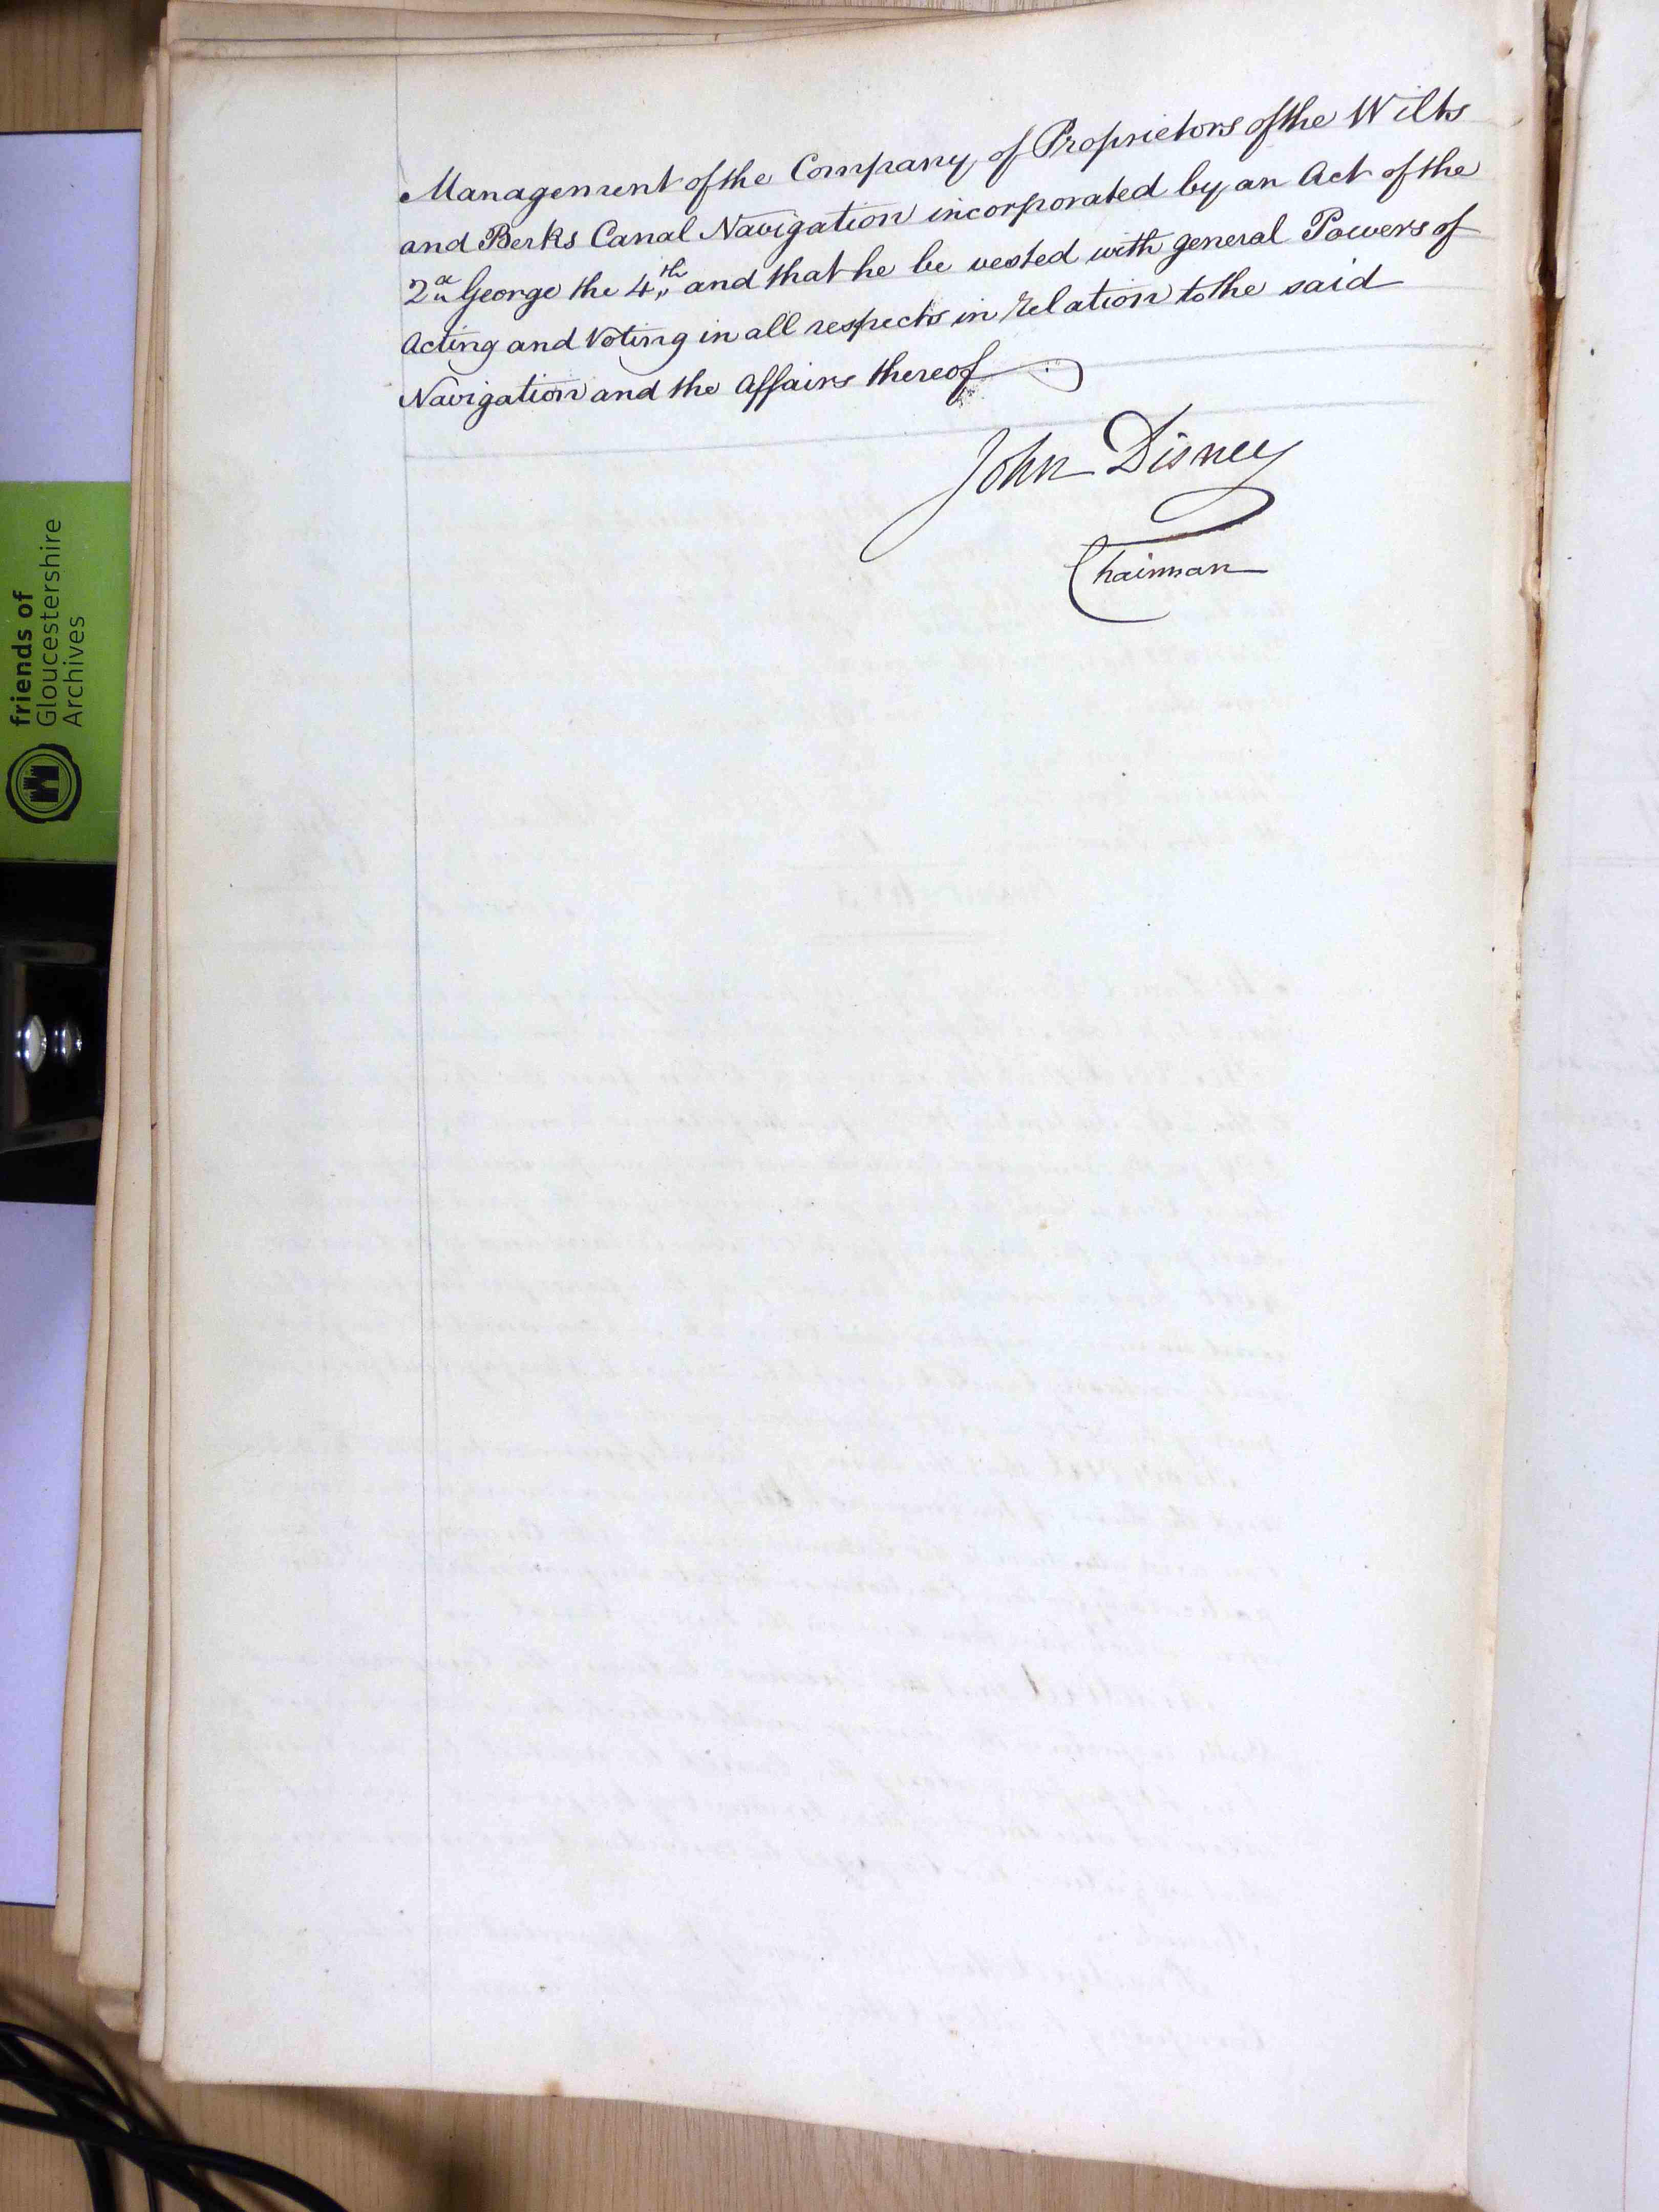 Management of the Company of Proprietors of the Wilts
and Berks Canal Navigation incorporated by an Act of the
2d George the 4th and that he be vested with general Powers of
Acting and Voting in all respects in relation to the said
Navigation and the Affairs thereof
John Disney
Chairman
friends of
Gloucestershire
Archives